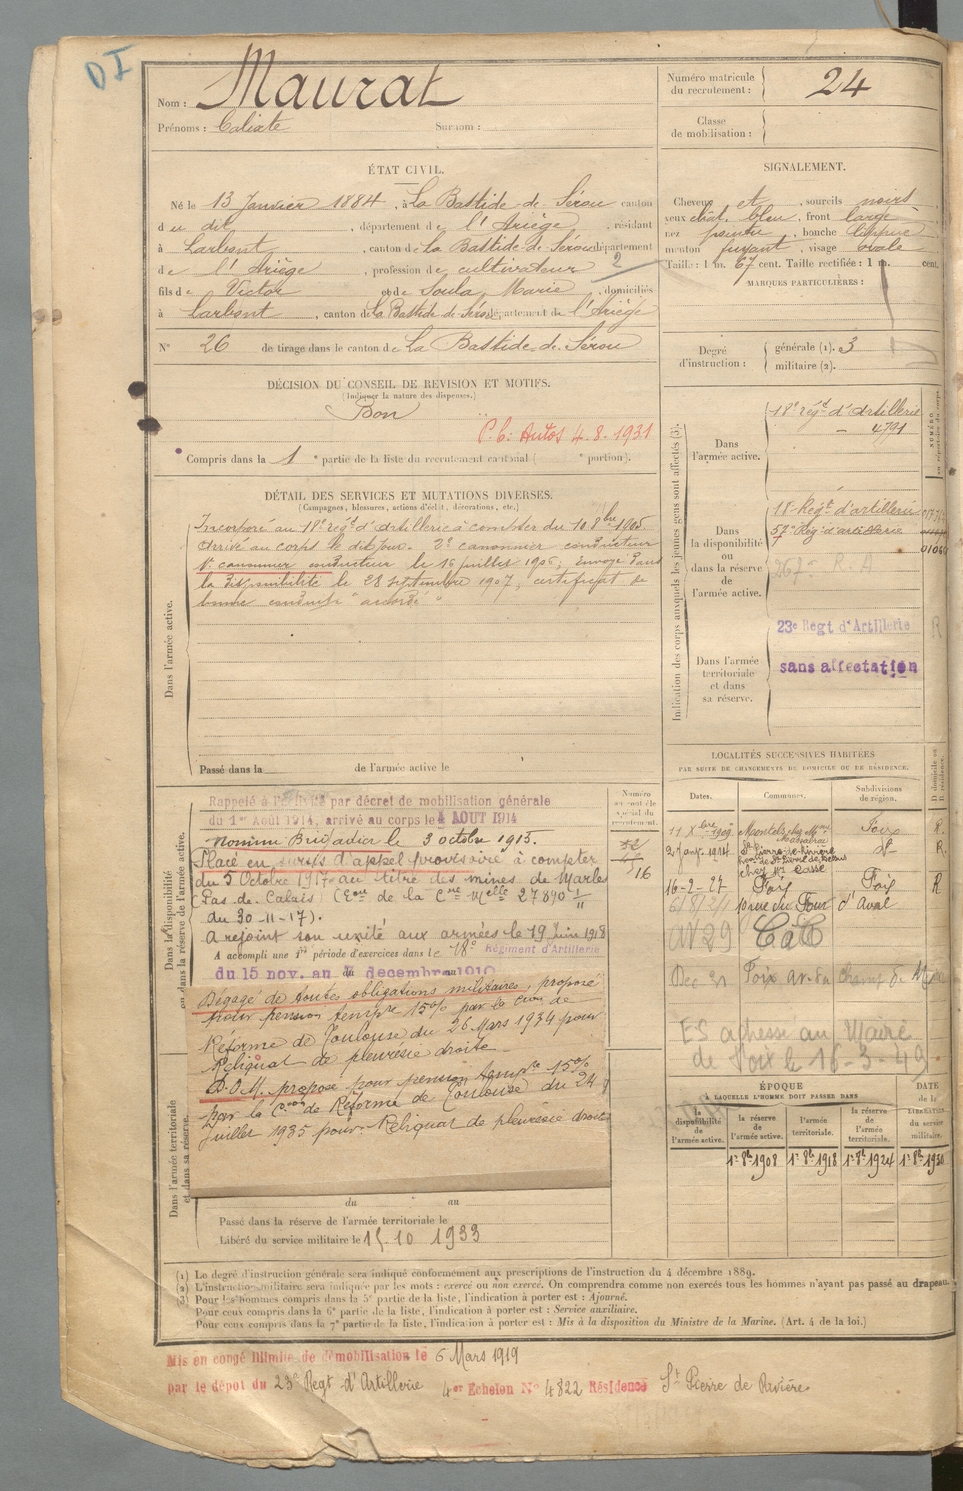 DI
Nom : Maurat
Prénoms : Calixte Surnom :
Numéro matricule du recrutement : 24
Classe de mobilisation :
ÉTAT CIVIL.
Né le 13 Janvier 1884, à La Bastide de Sérou canton
du dit, département de l'Ariège, résidant
à Larbont, canton de La Bastide-de-Sérou département
de l'Ariège, profession de cultivateur
fils de Victor et de Soula, Marie, domiciliés
à Larbont, canton de La Bastide-de-Sérou, département de l'Ariège
N° 26 de tirage dans le canton de La Bastide-de-Sérou
2
SIGNALEMENT.
Cheveux et, sourcils noirs
yeux chat. bleu, front large
nez pointu, bouche
menton fuyant, visage ovale
Taille : 1 m. 67 cent. Taille rectifiée : 1 m. cent.
MARQUES PARTICULIÈRES :
Degré d'instruction : générale (1). 3
militaire (2).
DÉCISION DU CONSEIL DE REVISION ET MOTIFS.
(Indiquer la nature des dispenses.)
Bon
P. C. Autos 4.8.1931
Compris dans la 1e partie de la liste du recrutement cantonal ( e portion).
Indication des corps auxquels les jeunes gens sont affectés (3).
Dans l'armée active.
18e Régt d'Artillerie
4791
Dans la disponibilité ou dans la réserve de l'armée active.
18e Régt d'artillerie
57e Rég. d'artillerie
267e R.A
Dans l'armée territoriale et dans sa réserve.
23e Régt d'Artillerie
sans affectation
DÉTAIL DES SERVICES ET MUTATIONS DIVERSES.
(Campagnes, blessures, actions d'éclat, décorations, etc.)
Dans l'armée active.
Incorporé au 18e régt d'artillerie à compter du 10 8bre 1905.
Arrivé au corps le dit jour. 2e canonnier conducteur
1er canonnier conducteur le 16 juillet 1906; envoyé dans
la disponibilité le 28 septembre 1907; certificat de
bonne conduite "accordé"
Passé dans la de l'armée active le
Dans la disponibilité ou dans la réserve de l'armée active.
Numéro au contrôle spécial du recrutement.
Rappelé à l'activité par décret de mobilisation générale
du 1er Août 1914, arrivé au corps le 4 AOUT 1914
nommé Brigadier le 3 octobre 1915.
Placé en sursis d'appel provisoire à compter
du 5 Octobre 1917 au titre des mines de Marles
(Pas de Calais) (Eon de la Cre Mlle 27890 1/11
du 30-11-17).
A rejoint son unité aux armées le 19 Juin 1918
A accompli une 1re période d'exercices dans le 18e Régiment d'Artillerie
du 15 nov. au decembre 1910
Dégagé de toutes obligations militaires, proposé
pour pension tempre 15% par la Cion de
Réforme de Toulouse du 26 Mars 1934 pour
Reliquat de pleurésie droite
D.O.M. proposé pour pension tempre 15%
par la Cion de Réforme de Toulouse du 24
juillet 1935 pour: Reliquat de pleurésie droite
Dans l'armée territoriale et dans sa réserve.
du au
Passé dans la réserve de l'armée territoriale le
Libéré du service militaire le 15-10 1933
LOCALITÉS SUCCESSIVES HABITÉES
PAR SUITE DE CHANGEMENTS DE DOMICILE OU DE RÉSIDENCE.
Dates. Communes. Subdivisions de région. D domicile ou R résidence.
11 Xbre 1909 Montels Foix R.
27 janv. 1914 St Pierre de Rivière dt R.
16-2-27 Foix Foix R
rue du Four d'Aval
Foix
ES adressé au Maire
de Foix le 16-3-49
ÉPOQUE
À LAQUELLE L'HOMME DOIT PASSER DANS
la disponibilité de l'armée active. la réserve de l'armée active. l'armée territoriale. la réserve de l'armée territoriale. DATE de la LIBÉRATION du service militaire.
1er 8b 1908 1er 8b 1918 1er 8b 1924 1er 8b 1930
(1) Le degré d'instruction générale sera indiqué conformément aux prescriptions de l'instruction du 4 décembre 1889.
(2) L'instruction militaire sera indiquée par les mots : exercé ou non exercé. On comprendra comme non exercés tous les hommes n'ayant pas passé au drapeau.
(3) Pour les hommes compris dans la 5e partie de la liste, l'indication à porter est : Ajourné.
Pour ceux compris dans la 6e partie de la liste, l'indication à porter est : Service auxiliaire.
Pour ceux compris dans la 7e partie de la liste, l'indication à porter est : Mis à la disposition du Ministre de la Marine. (Art. 4 de la loi.)
Mis en congé illimité de démobilisation le 6 Mars 1919
par le dépôt du 23e Regt d'Artillerie 4er Echelon N° 4822 Résidence St Pierre de Rivière